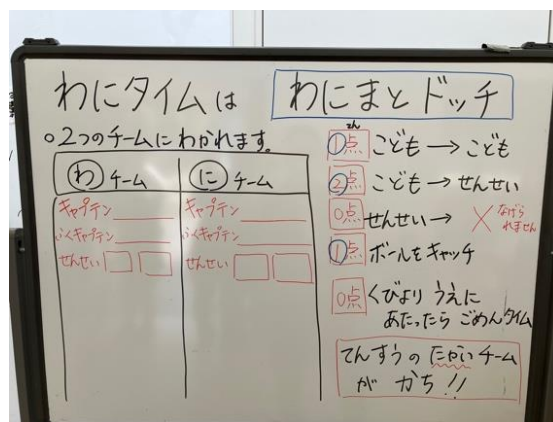 わにタイムは わにまとドッチ
○2つのチームにわかれます。
わチーム にチーム
キャプテン キャプテン
ふくキャプテン ふくキャプテン
せんせい せんせい
てん
1点 こども→こども
2点 こども→せんせい
0点 せんせい→× なげられません
1点 ボールをキャッチ
0点 くびより うえに
あたったら ごめんタイム
てんすうの たかいチーム
が かち!!